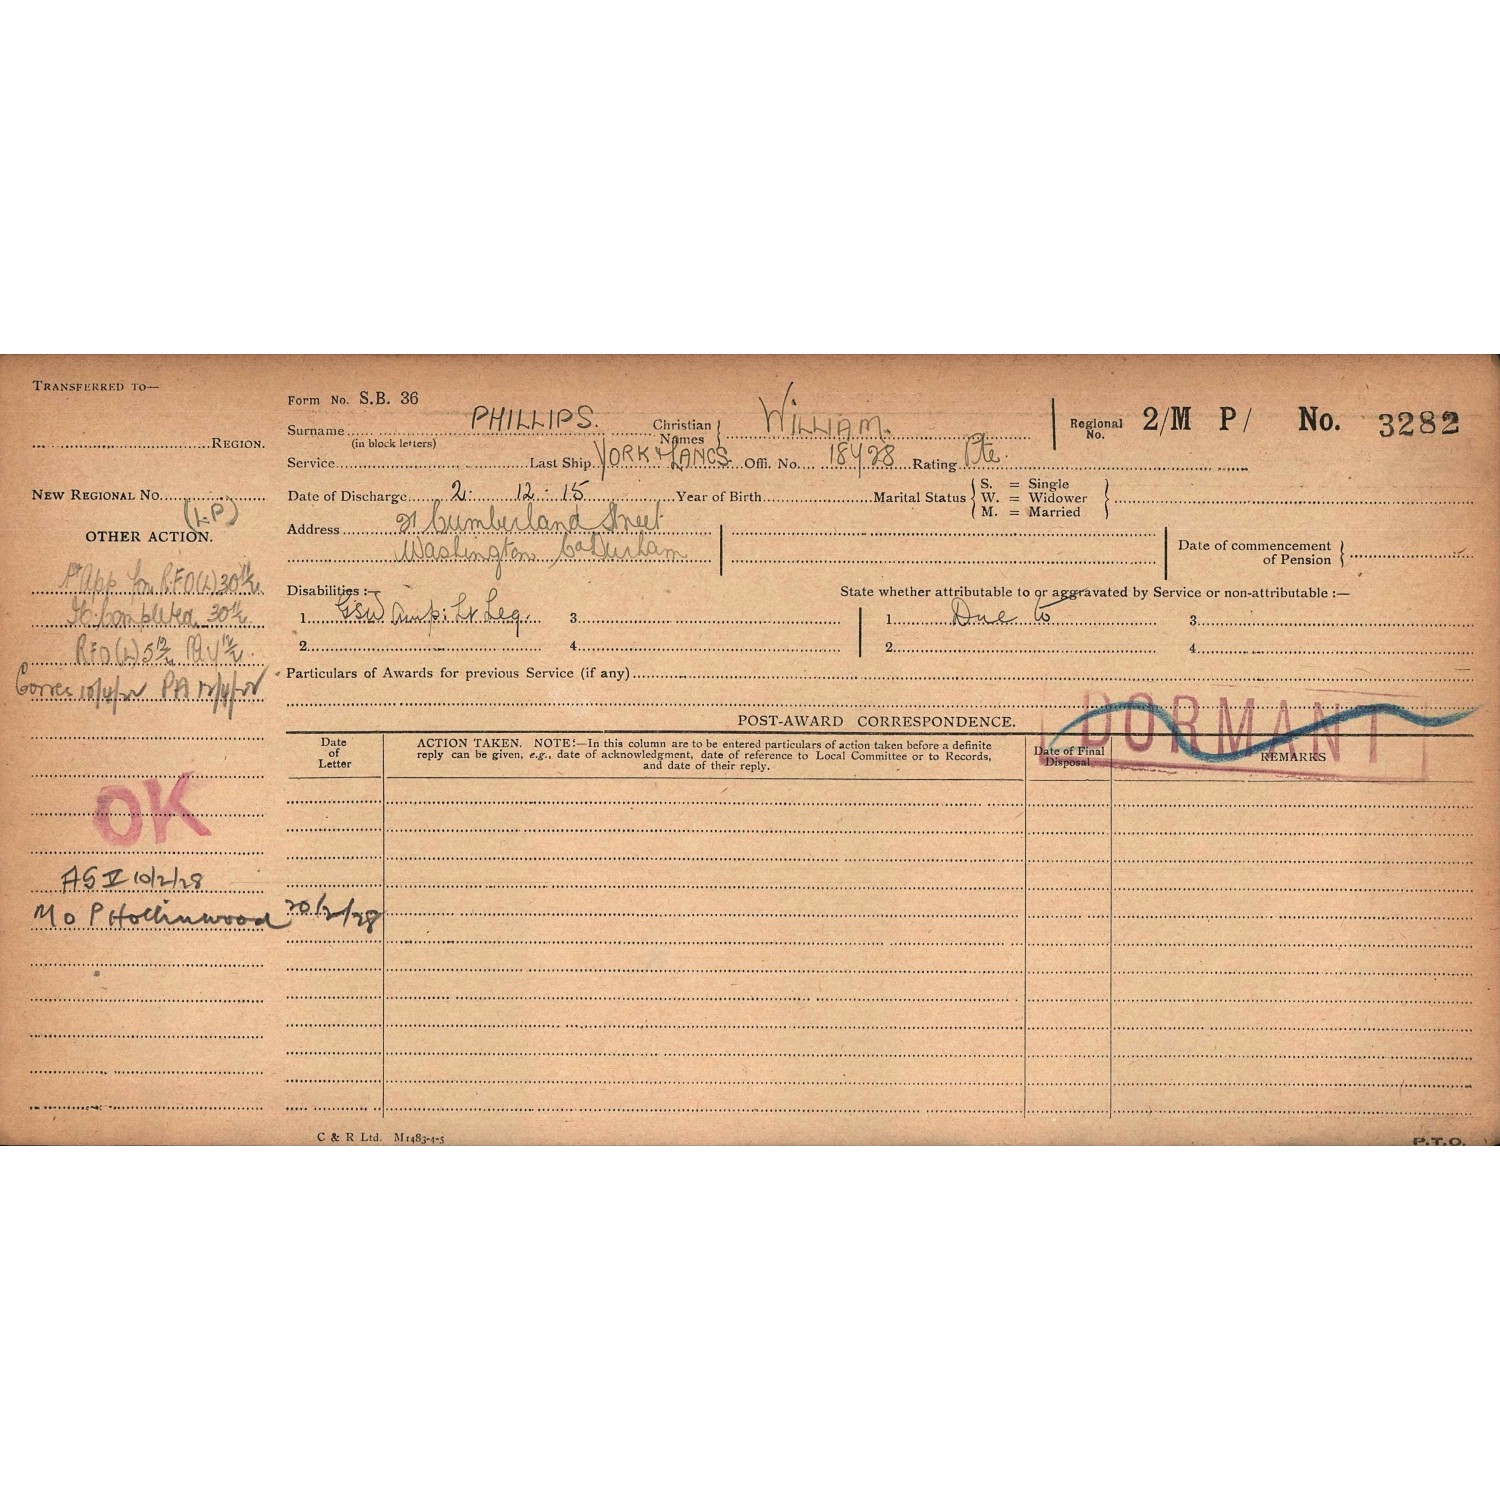 TRANSFERRED TO—
REGION.
NEW REGIONAL No.
(L.P)
OTHER ACTION.
App for R.F.O(L) 30
Completed 30
R F O (L) 5
Corres 10/4/22 PA 12/4/22
OK
AG V 10/2/28
M o P Hollinwood 20/2/28
Form No. S.B. 36
Surname PHILLIPS. Christian Names WILLIAM. Regional No. 2/M P/ No. 3282
(in block letters)
Service Last Ship YORK & LANCS Offi. No. 18428 Rating Pte.
Date of Discharge 2. 12. 15 Year of Birth Marital Status { S. = Single W. = Widower M. = Married }
Address 21 Cumberland Street
Washington Co Durham
Date of commencement of Pension
Disabilities :— State whether attributable to or aggravated by Service or non-attributable :—
1 GSW Amp: Lt Leg. 3 1 Due to 3
2 4 2 4
Particulars of Awards for previous Service (if any)
DORMANT
POST-AWARD CORRESPONDENCE.
Date of Letter
ACTION TAKEN. NOTE:—In this column are to be entered particulars of action taken before a definite
reply can be given, e.g., date of acknowledgment, date of reference to Local Committee or to Records,
and date of their reply.
Date of Final Disposal
REMARKS
C & R Ltd. M1483-4-5
P.T.O.